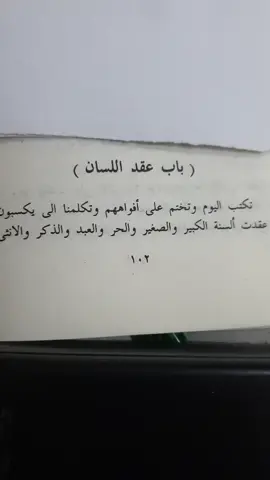 ( باب عقد اللسان )
تكتب اليوم ونختم على أفواههم وتكلمنا الى يكسبون
عقدت ألسنة الكبير والصغير والحر والعبد والذكر والانثى
١٠٢